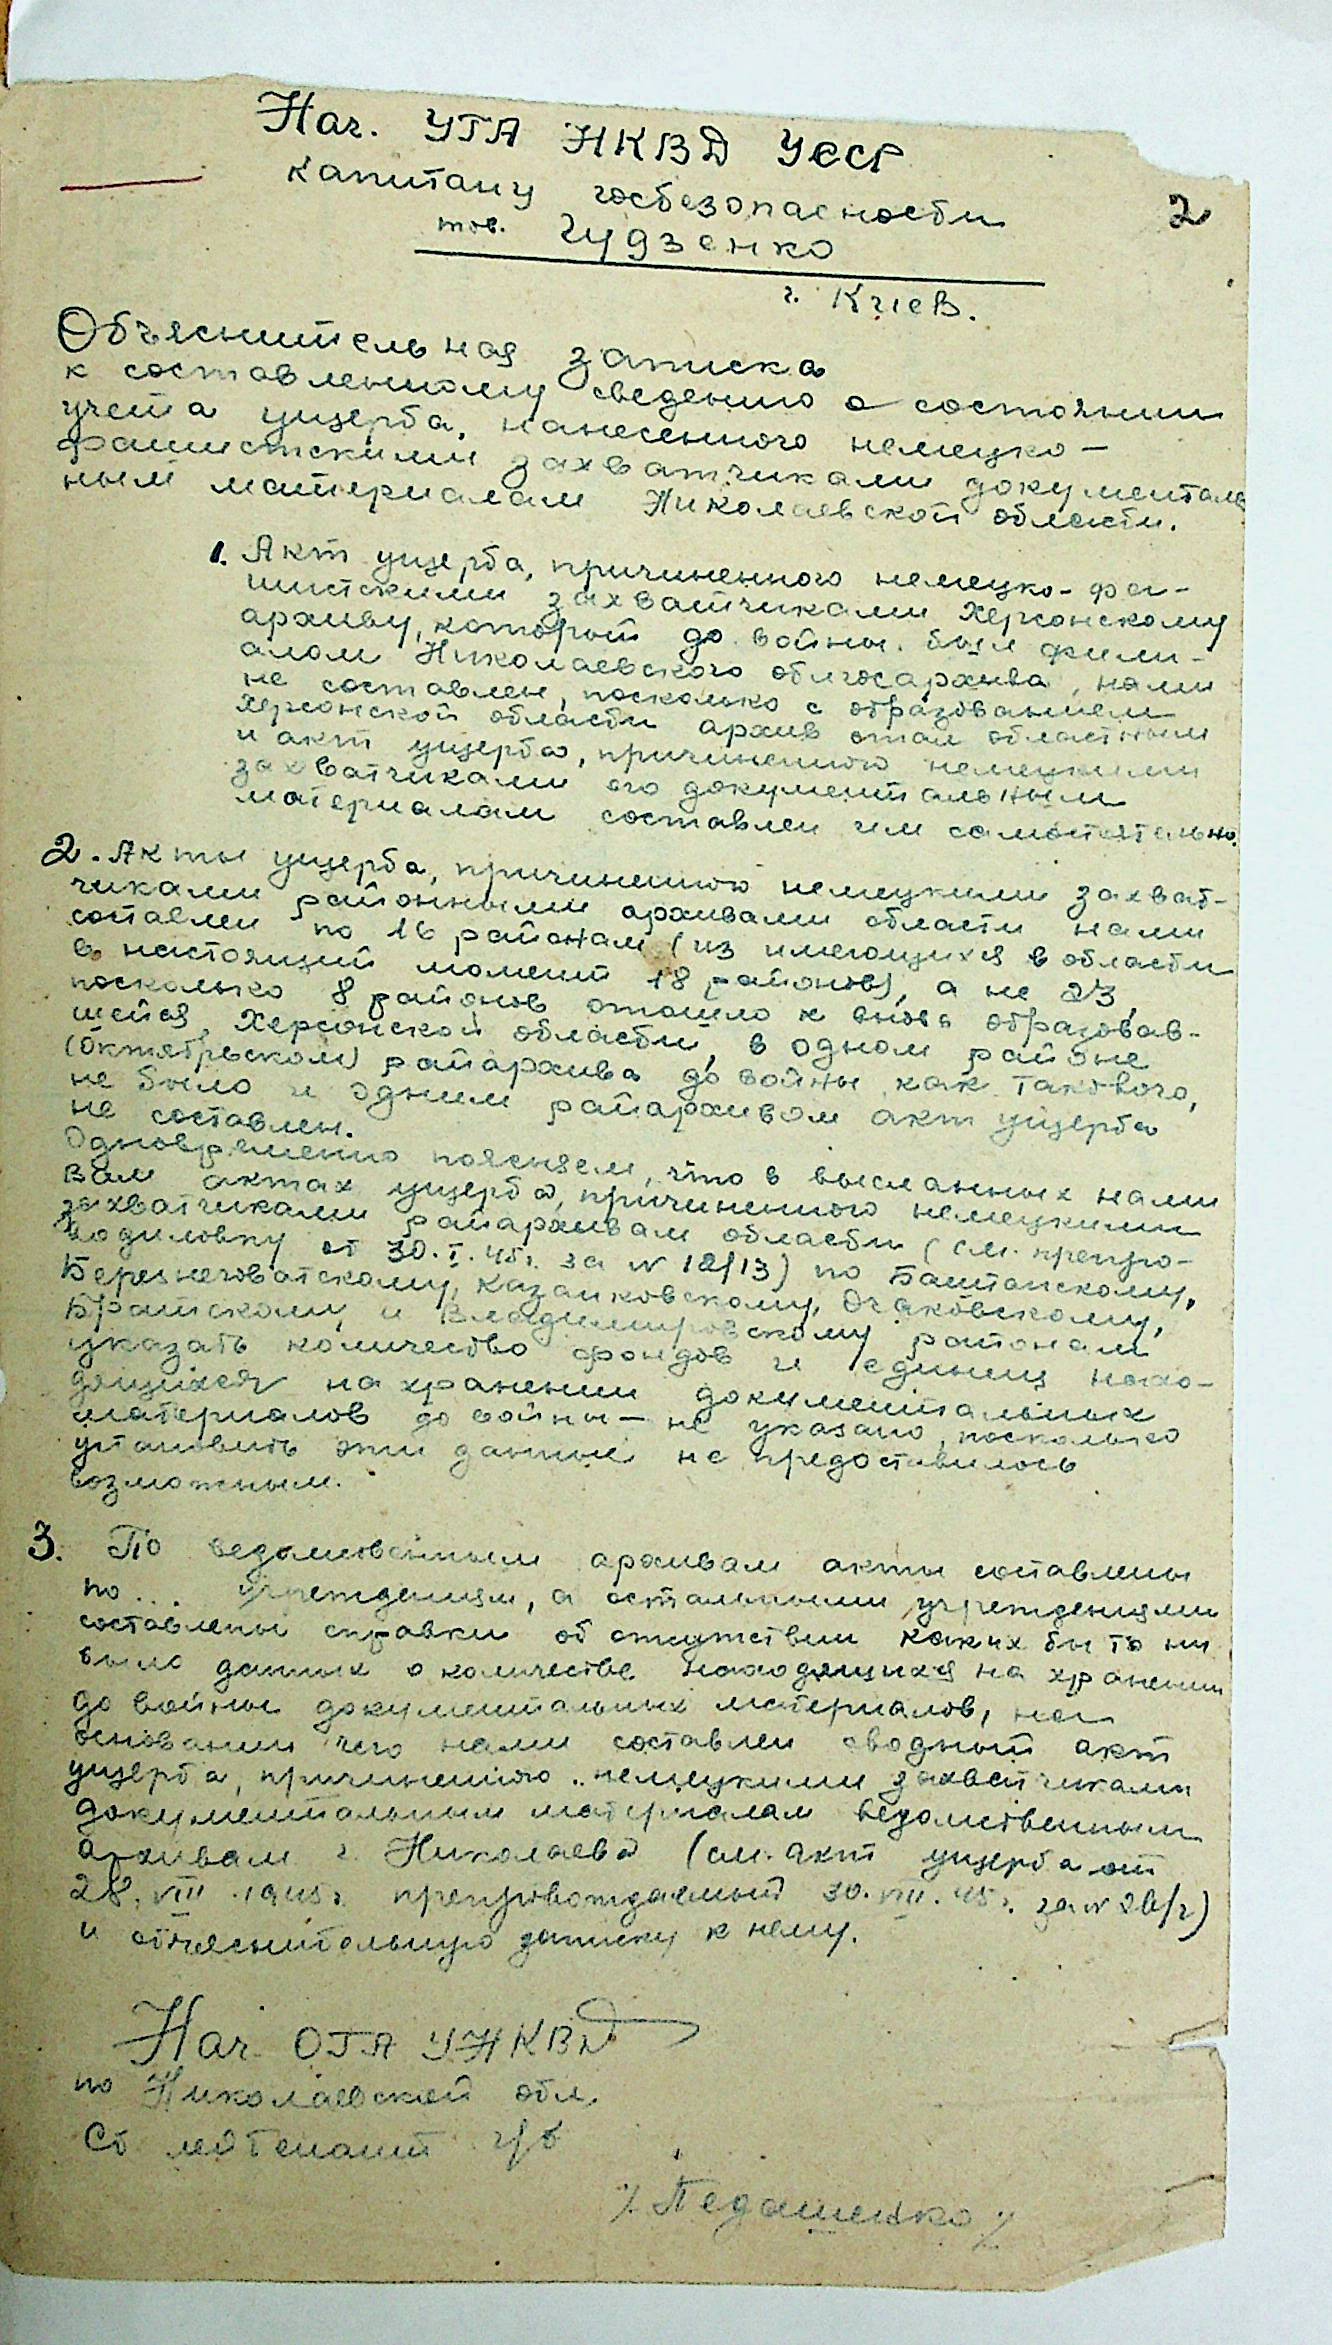 Нач. УГА НКВД УССР
2
капитану госбезопасности
тов. Гудзенко
г. Киев.
Объяснительная записка
к составленному сведению о состоянии
учета ущерба, нанесенного немецко-
фашистскими захватчиками документаль
ным материалам Николаевской области.
1. Акт ущерба, причиненного немецко-фа-
шистскими захватчиками Херсонскому
архиву, который до войны был фили-
алом Николаевского облгосархива, нами
не составлен, посколько с образованием
Херсонской области архив стал областным
и акт ущерба, причиненного немецкими
захватчиками его документальным
материалам составлен им самостоятельно.
2. Акты ущерба, причиненного немецкими захват-
чиками районными архивами области нами
составлен по 16 районам (из имеющихся в области
в настоящий момент 18 районов), а не 23,
посколько 8 районов отошло к вновь образовав-
шейся Херсонской области, в одном районе
(Октябрьском) райархива до войны как такового,
не было и одним райархивом акт ущерба
не составлен.
Одновременно поясняем, что в высланных нами
Вам актах ущерба, причиненного немецкими
захватчиками райархивам области (см. препро-
водиловку от 30.I.45г. за № 12/13) по Баштанскому,
Березнеговатскому, Казанковскому, Очаковскому,
Братскому и Владимировскому районам
указать количество фондов и единиц нахо-
дящихся на хранении документальных
материалов до войны - не указано, посколько
установить эти данные не предоставилось
возможным.
3. По ведомственным архивам акты составлены
по ... учреждениям, а остальными учреждениями
составлены справки об отсутствии каких бы то ни
было данных о количестве находящихся на хранении
до войны документальных материалов, на
основании чего нами составлен сводный акт
ущерба, причиненного немецкими захватчиками
документальным материалам ведомственным
архивам г. Николаева (см. акт ущерба от
28.VIII.1945г. препровождаемый 30.VIII.45г. за №
и объяснительную записку к нему.
Нач ОГА УНКВД
по Николаевской обл.
Ст лейтенант г/б
/ Педашенко /